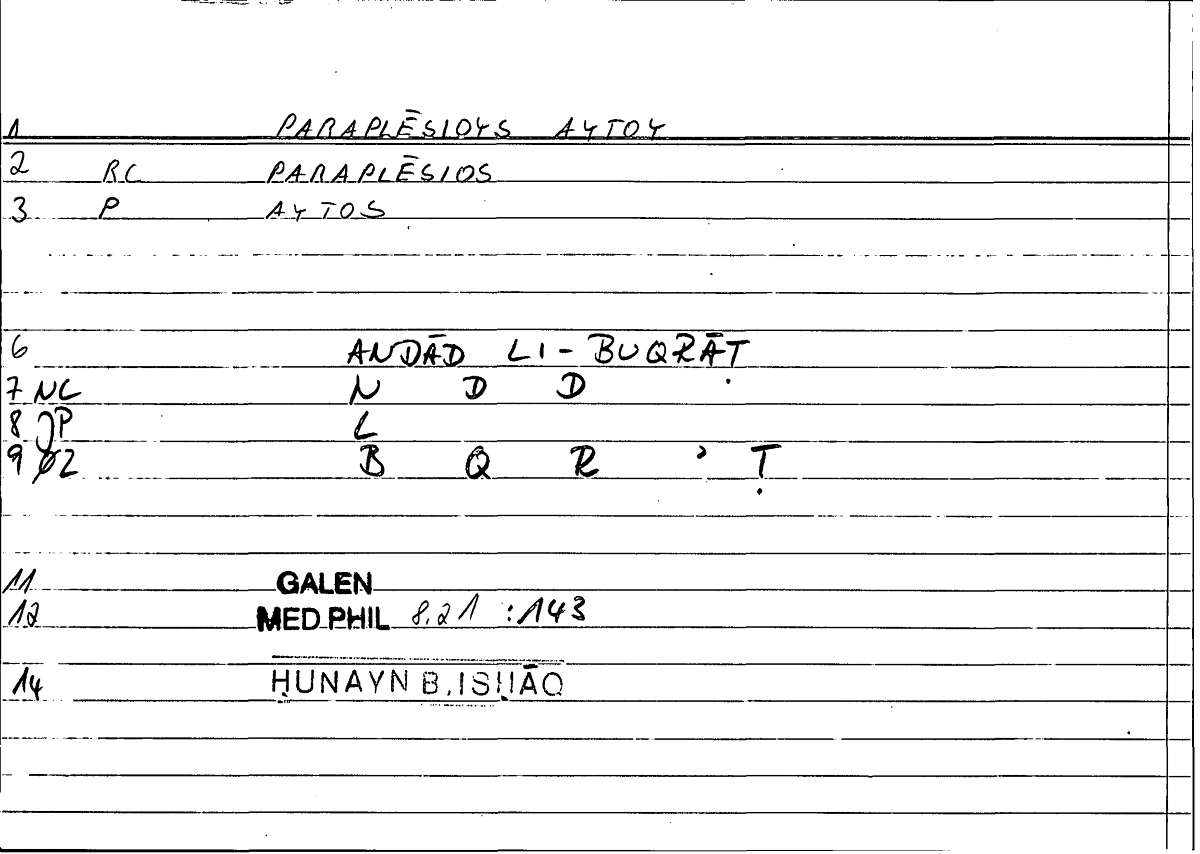 1 PARAPLĒSIOYS AYTOY
2 RC PARAPLĒSIOS
3 P AYTOS
6 ANDĀD LI-BUQRĀṬ
7 NC N D D
8 JP L
9 ØZ B Q R ʾ Ṭ
11 GALEN
12 MED PHIL 8.21 :143
14 ḤUNAYN B. ISḤĀQ